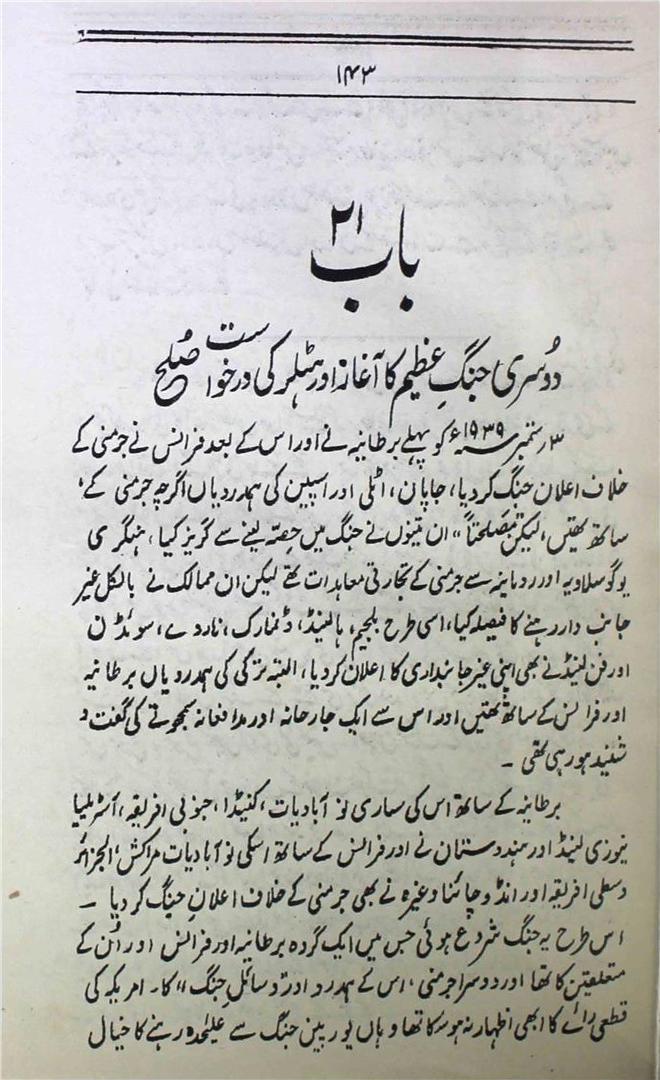 ۱۴۳
باب ۲۱
دوسری جنگِ عظیم کا آغاز اور ہٹلر کی درخواست صُلح
۳ ستمبر ۱۹۳۹ء کو پہلے برطانیہ نے اور اس کے بعد فرانس نے جرمنی کے
خلاف اعلان جنگ کر دیا، جاپان، اٹلی اور اسپین کی ہمدردیاں اگرچہ جرمنی کے
ساتھ تھیں، لیکن مَصلحتاً ان تینوں نے جنگ میں حِصّہ لینے سے گریز کیا، ہنگری
یوگوسلاویہ اور رومانیہ سے جرمنی کے تجارتی معاہدات تھے لیکن ان ممالک نے بالکل غیر
جانب دار رہنے کا فیصلہ کیا، اسی طرح بلجیم، ہالینڈ، ڈنمارک، ناروے، سوئڈن
اور فن لینڈ نے بھی اپنی غیر جانبداری کا اعلان کر دیا، البتہ ترکی کی ہمدردیاں برطانیہ
اور فرانس کے ساتھ تھیں اور اس سے ایک جارحانہ اور مدافعانہ سمجھوتے کی گفت و
شنید ہو رہی تھی ۔
برطانیہ کے ساتھ اس کی ساری نو آبادیات، کنیڈا، جنوبی افریقہ، آسٹریلیا
نیوزی لینڈ اور ہندوستان نے اور فرانس کے ساتھ اسکی نو آبادیات مراکش، الجزائر
وسطی افریقہ اور انڈو چائنا وغیرہ نے بھی جرمنی کے خلاف اعلانِ جنگ کر دیا ۔
اس طرح یہ جنگ شروع ہوئی جس میں ایک گروہ برطانیہ اور فرانس اور اُن کے
متعلقین کا تھا اور دوسرا جرمنی، اس کے ہمدرد اور وسائلِ جنگ کا۔ امریکہ کی
قطعی رائے کا ابھی اظہار نہ ہو سکا تھا وہاں یورپین جنگ سے علیٰحدہ رہنے کا خیال